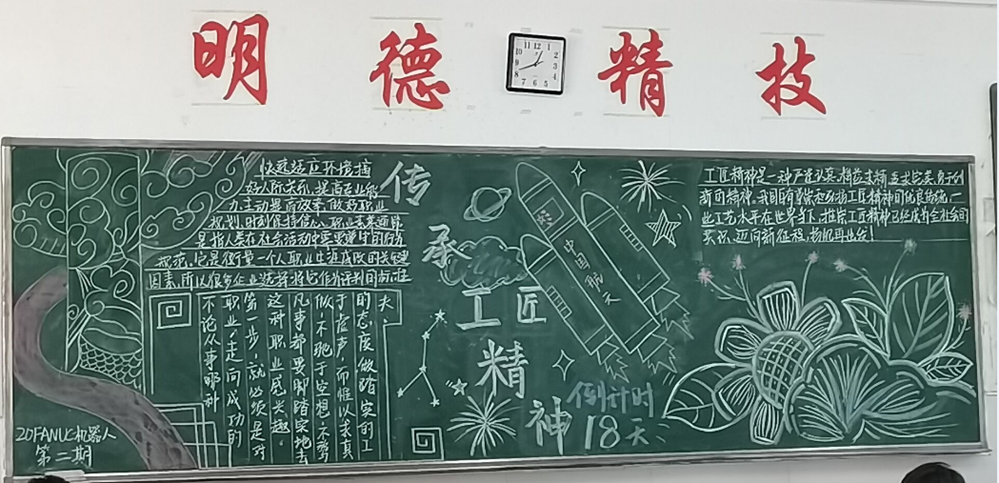 明德精技
快速适应环境搞
好人际关系,提高专业能
力,主动高效率,做好职业
规划,时刻保持信心,职业未来通常
是指人类在社会活动中需要遵守的行为
规范,它是衡量一个人职业生涯成败的关键
因素,所以很多企业选择将它作为评判的标准
传承
工匠
精神
中国航天
倒计时
18天
工匠精神是一种严谨认真、精益求精、追求完美、勇于创
新的精神。我国自古就有
业工艺水平在世界
迈向新征程,扬帆再出发!
不论从事哪种
职业,走向成功的
第一步,就必须是对
这种职业感兴趣。
凡事都要脚踏实地去
似,不驰于空想,不骛
于虚声,而惟以求真
的态度做踏实的工
夫。
20FANUC机器人
第二期